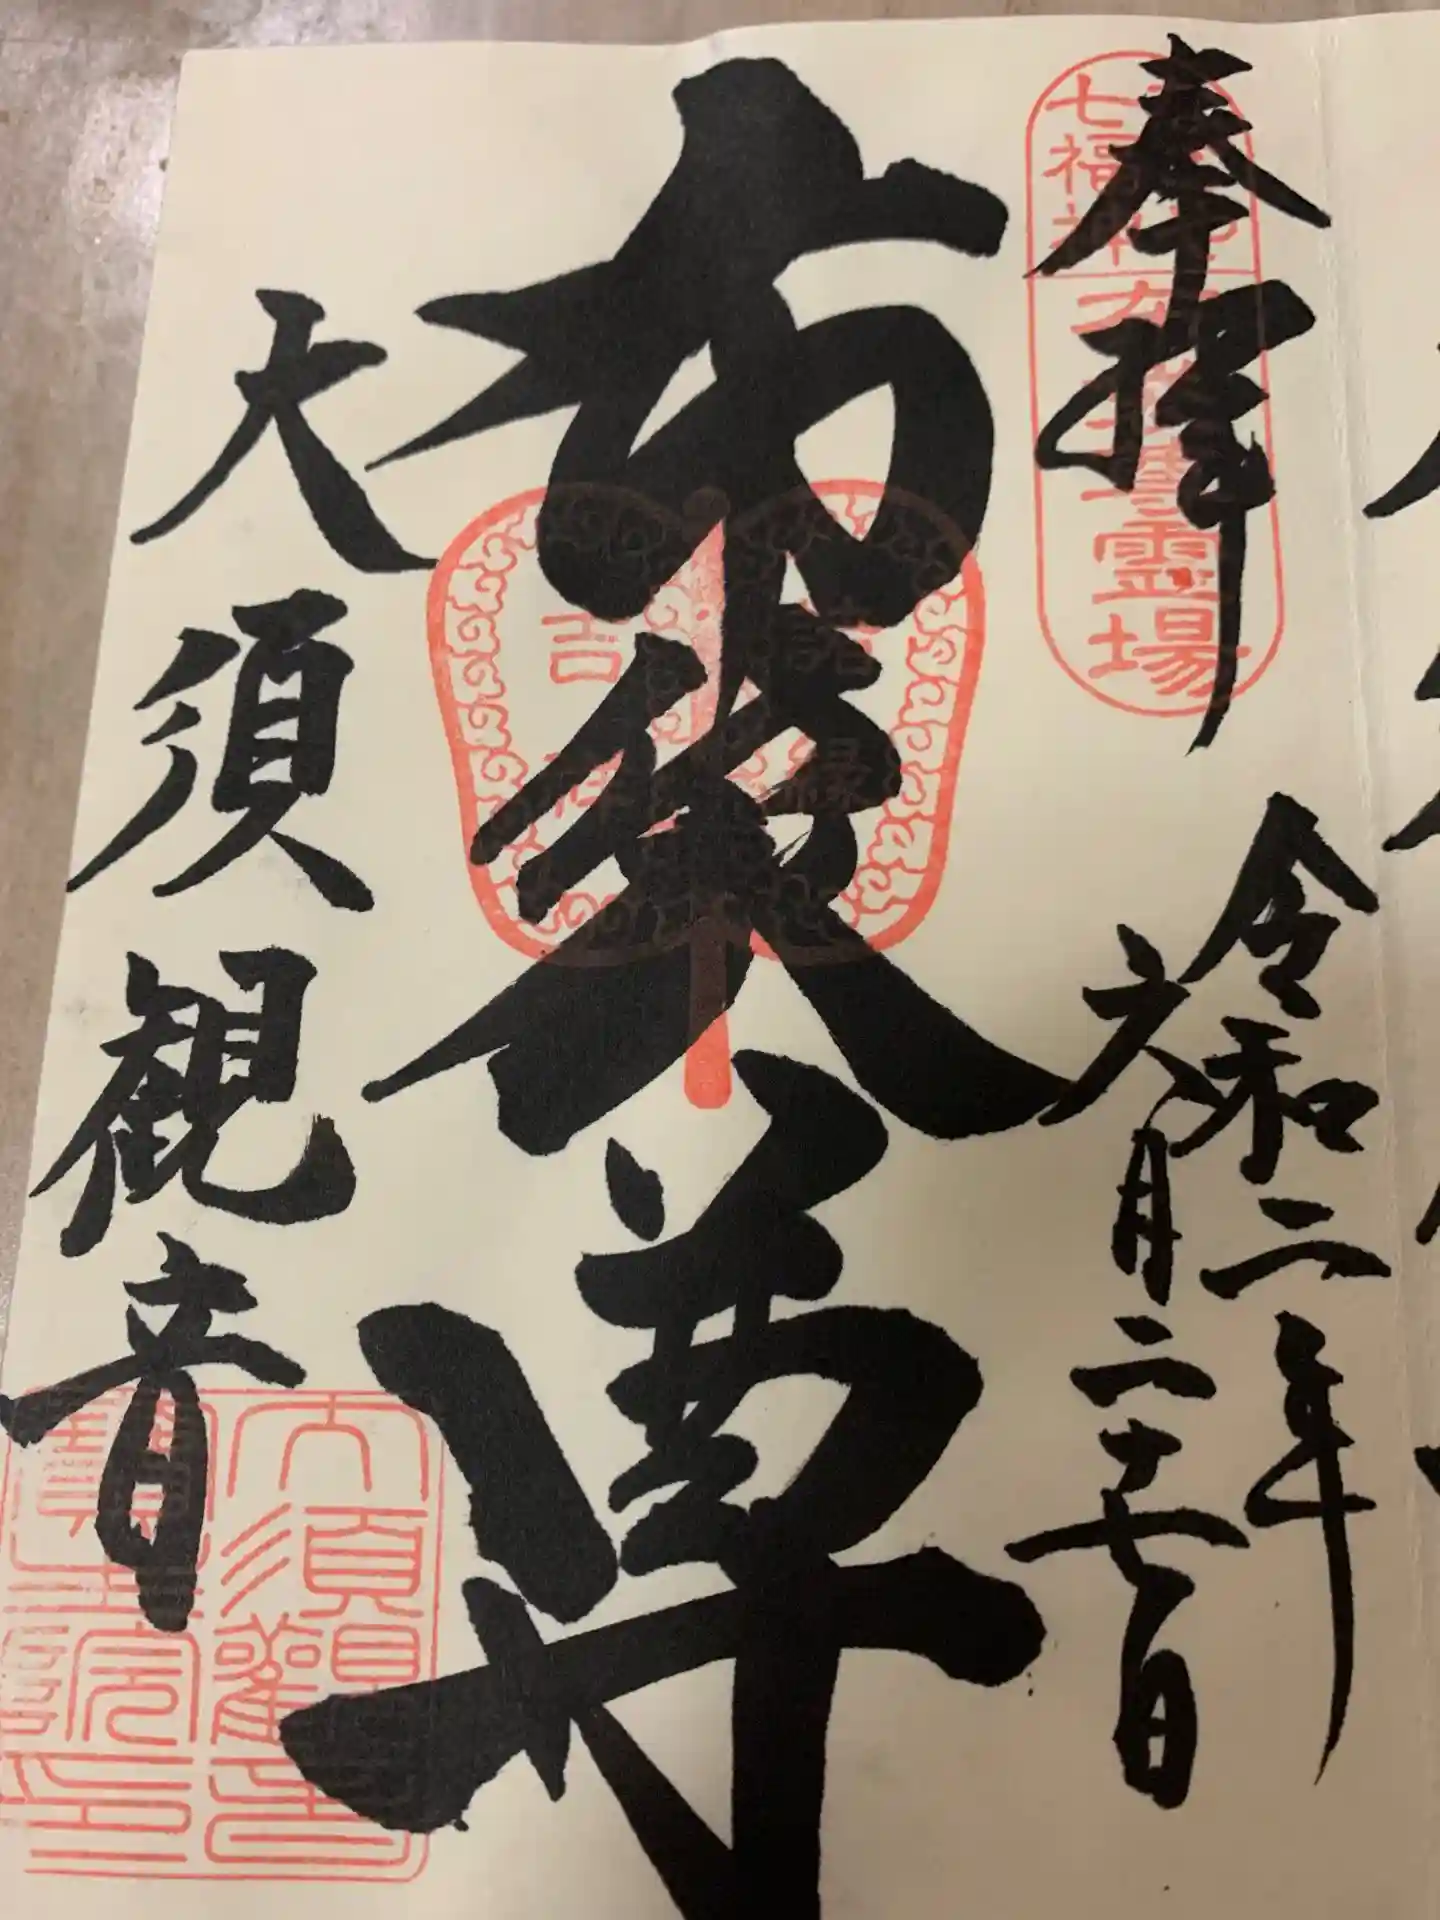 奉拝
令和二年
六月二十七日
布袋尊
大須観音
七福神
霊場
吉祥
諸縁
大須観音
寶生院印